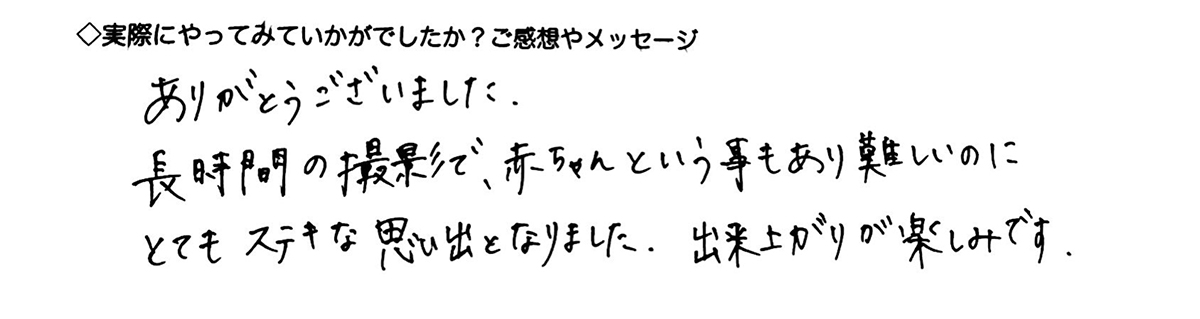 ◇実際にやってみていかがでしたか？ご感想やメッセージ
ありがとうございました.
長時間の撮影で、赤ちゃんという事もあり難しいのに
とてもステキな思い出となりました. 出来上がりが楽しみです.